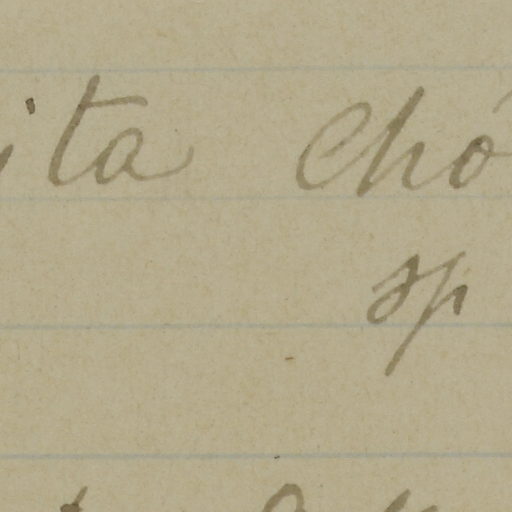 ita Chó
sp